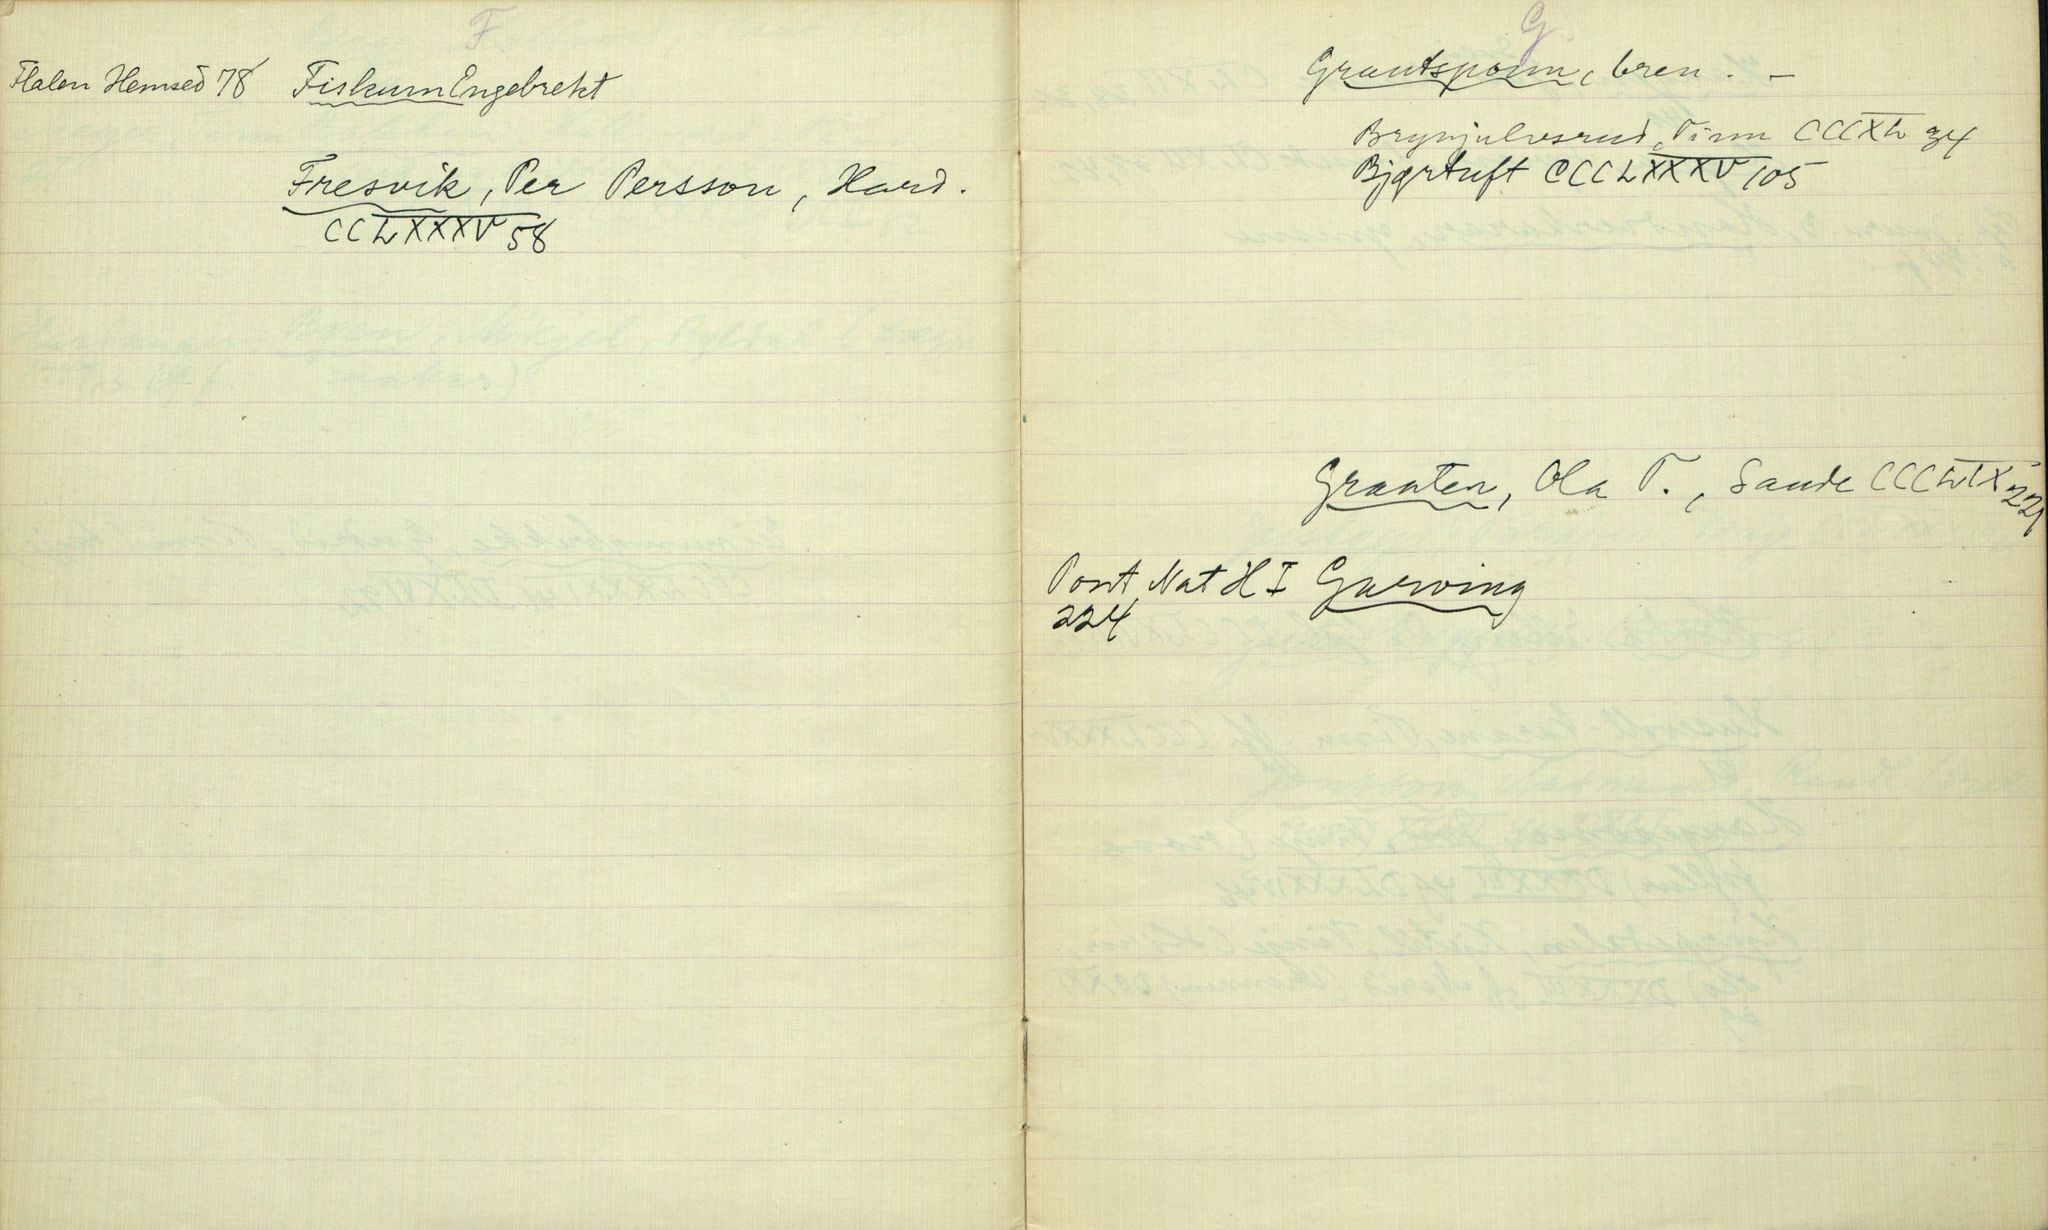 F
Flaten Hemsed 78 Fiskum Engebrekt
Fresvik, Per Persson, Hard.
CCLXXXV 58
G.
Grautsponn, bren. -
Brynjulvsrud, Tinn CCCXL 34
Bjørtuft CCCLXXXV 105
Grauten, Ola T., Sande CCCLIX 221
Pont. Nat H I Garving
224